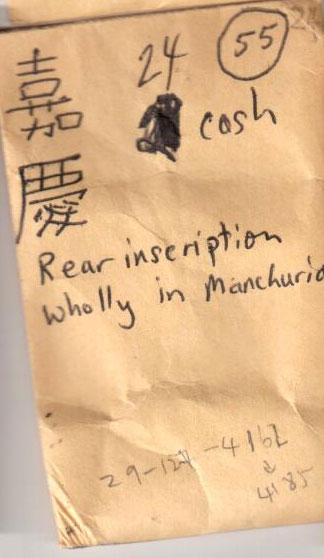 嘉慶
24
55
cash
Rear inscription
wholly in Manchuria
29-124-4162
4185